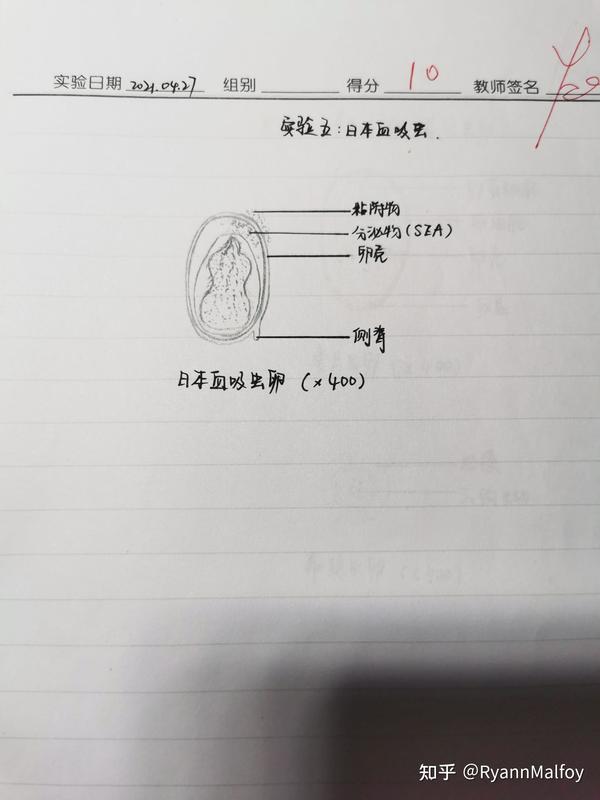 实验日期 2021.04.27 组别 得分 10 教师签名
实验五:日本血吸虫.
粘附物
分泌物(SEA)
卵壳
侧脊
日本血吸虫卵 (×400)
知乎 @RyannMalfoy